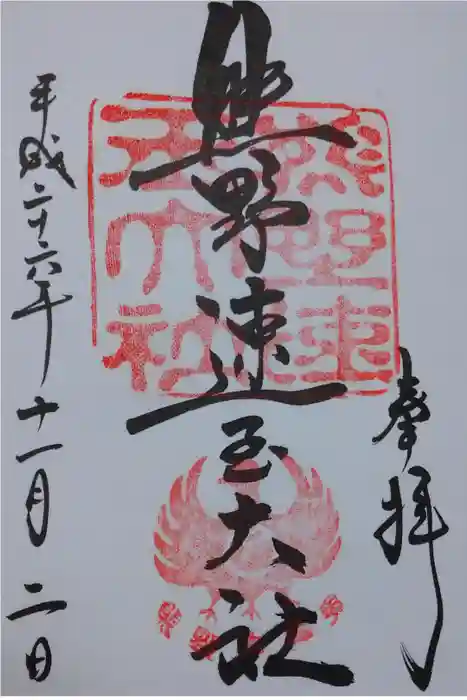 奉拝
熊野速玉大社
熊野速玉大社
平成二十六年十一月二日